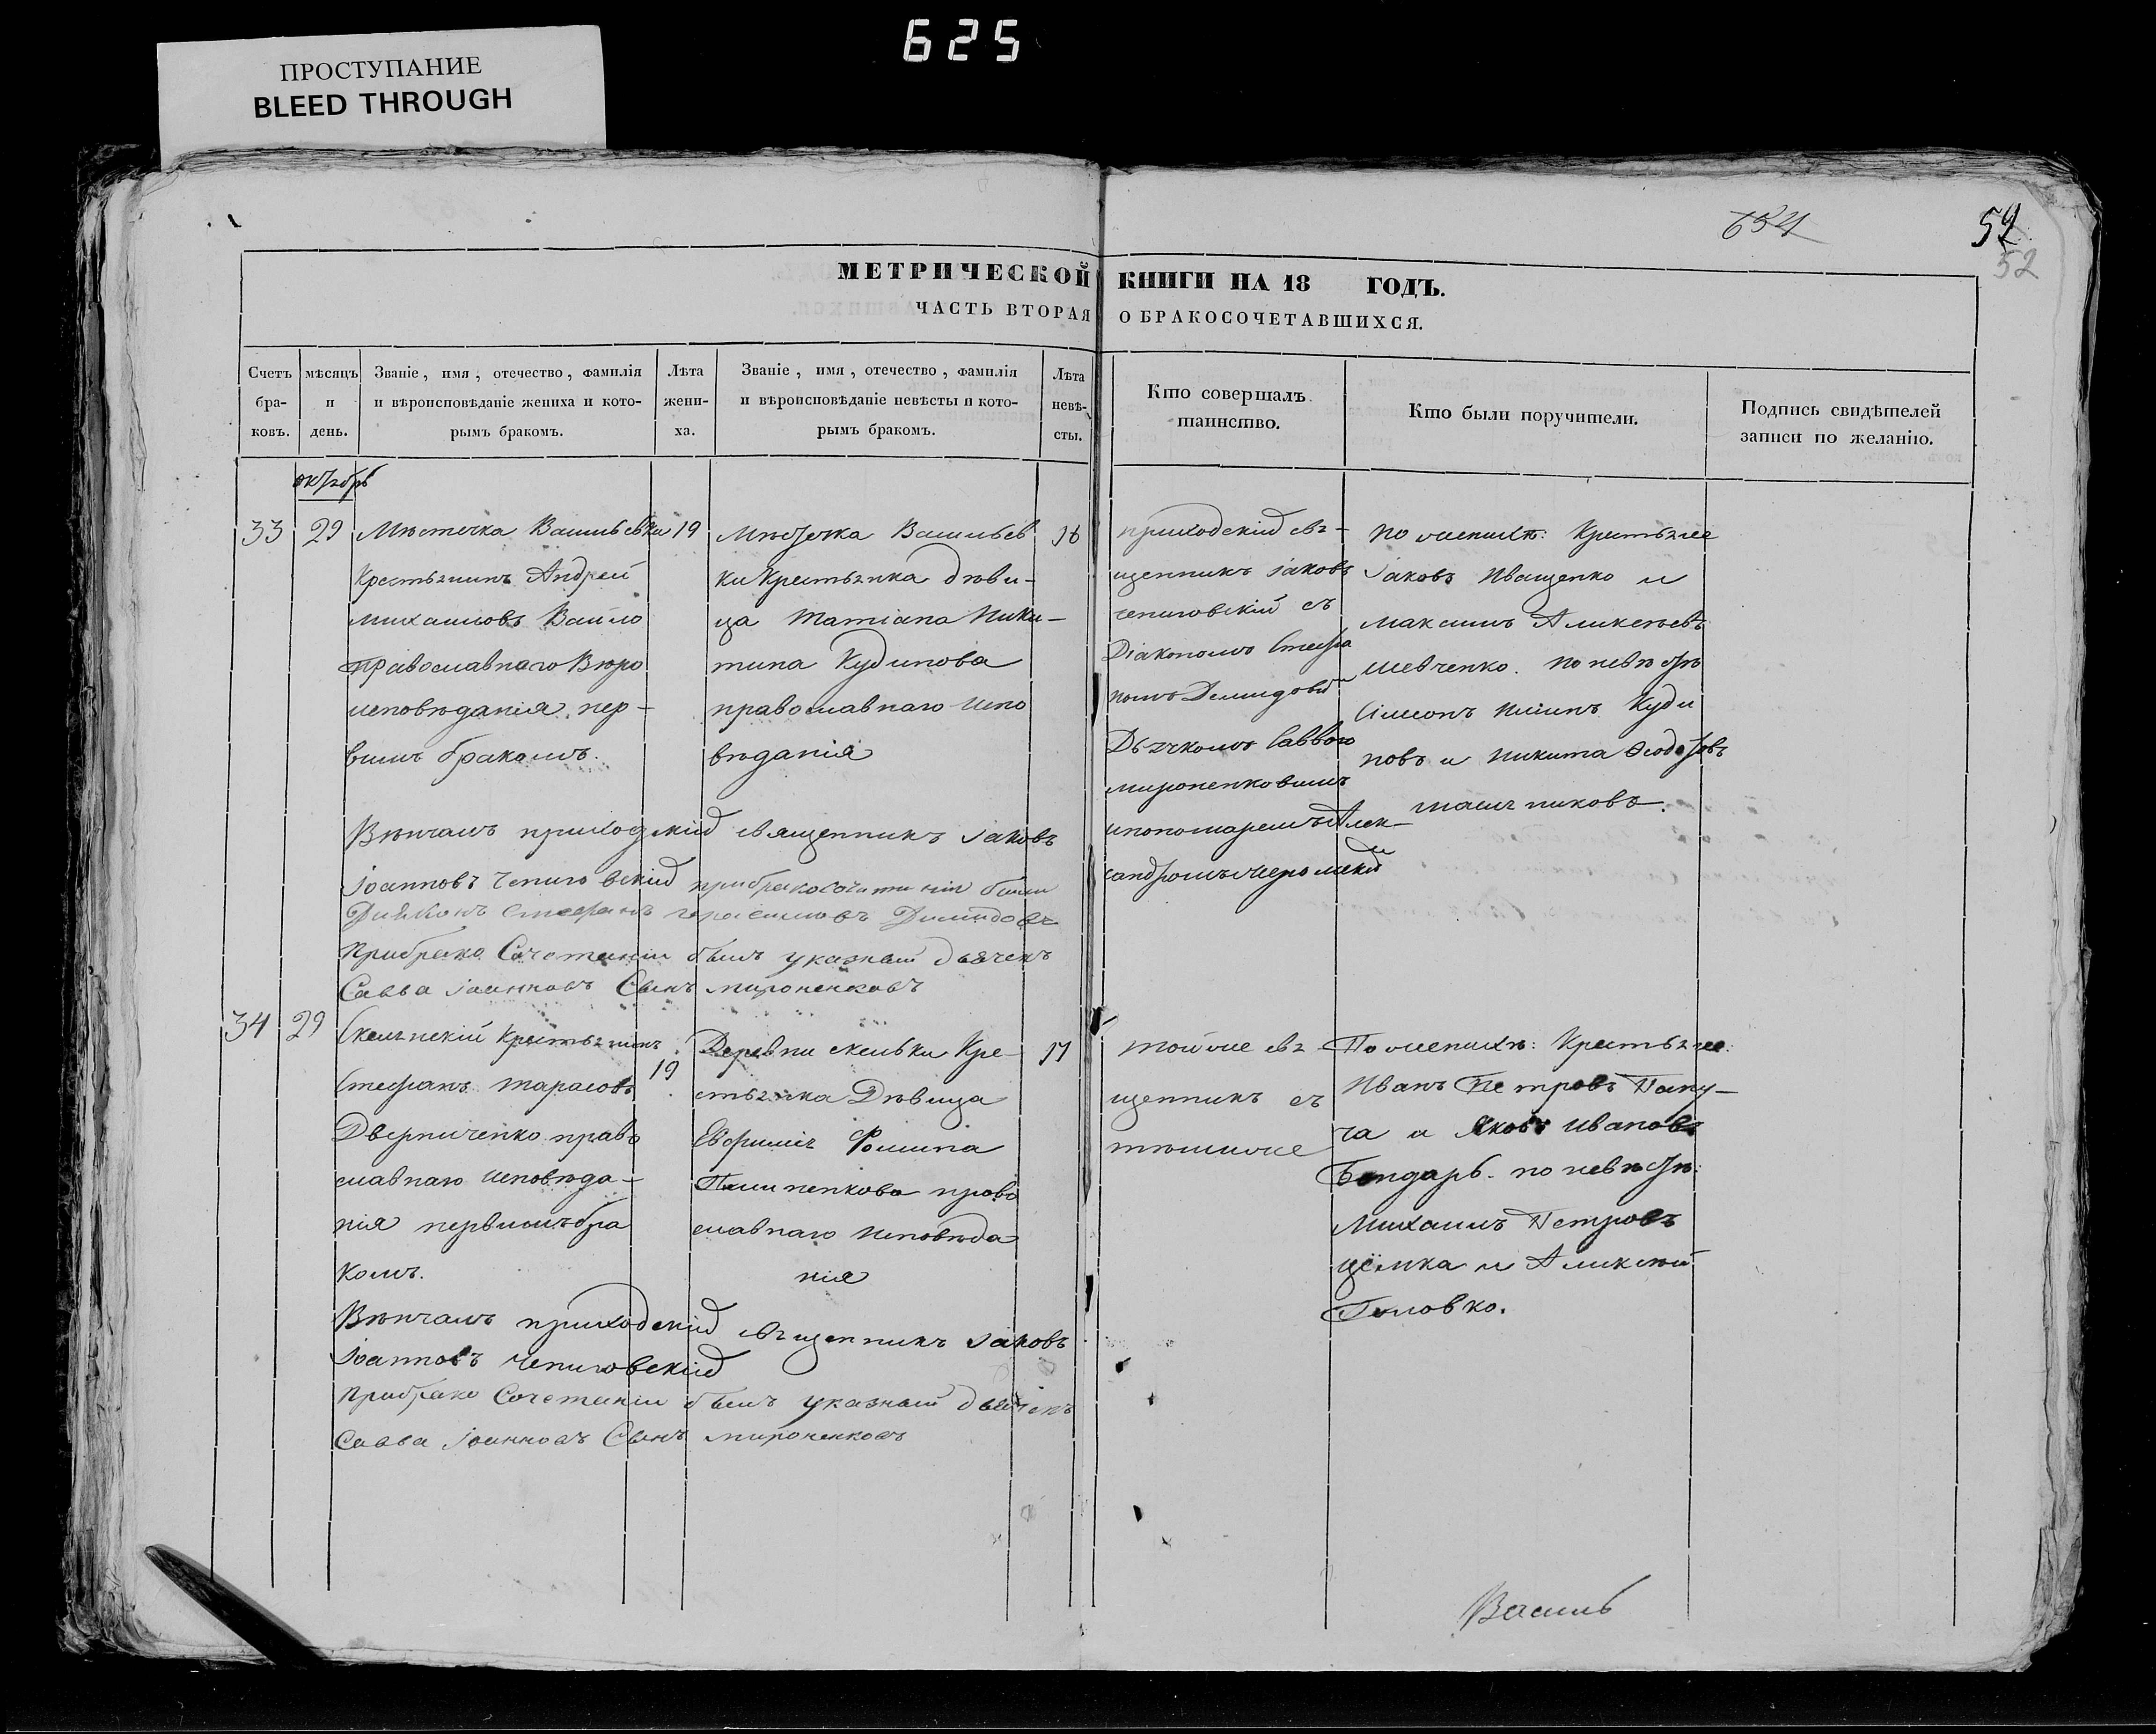 625
ПРОСТУПАНИЕ
BLEED THROUGH
654
54
52
МЕТРИЧЕСКОЙ КНИГИ НА 18 ГОДЪ.
ЧАСТЬ ВТОРАЯ О БРАКОСОЧЕТАВШИХСЯ.
Счетъ бра-ковъ.
мѣсяцъ и день.
Званіе, имя, отечество, фамилія
и вѣроисповѣданіе жениха и кото-
рымъ бракомъ.
Лѣта жени-ха.
Званіе, имя, отечество, фамилія
и вѣроисповѣданіе невѣсты и кото-
рымъ бракомъ.
Лѣта невѣ-сты.
Кто совершалъ
таинство.
Кто были поручители.
Подпись свидѣтелей
записи по желанію.
октябрь
33
29
Мѣстечка Васильевки
Крестьянинъ Андрей
Михаиловъ Вайло
православнаго Вѣро
исповѣданія, пер-
вымъ бракомъ.
19
Мѣстечка Васильев
ки Крестьянка дѣви-
ца Татіана Ники-
тина Кудинова
православнаго испо
вѣданія
приходскій свя-
щенникъ Іаковъ
Чепиговскій съ
Діакономъ Стефа
номъ Демидовы
Дьячкомъ Саввою
Мироненковымъ
и пономаремъ Алек-
сандромъ
по женихѣ: Крестьяне
Іаковъ Иващенко и
Максимъ Алексѣевъ
Шевченко. по невѣстѣ
Сімеонъ Куди
новъ и Никита Ѳеодотовъ
Вѣнчалъ приходскій священникъ Іаковъ
Іоанновъ Чепиговскій при бракосочетаніи былъ
Діяконъ Стефанъ Герасимовъ Демидовъ
При брако Сочетаніи былъ указный дьячекъ
Савва Іоанновъ Сынъ Мироненковъ
34
29
Скельнскій Крестьянинъ
Стефанъ Тарасовъ
Дверниченко право
славнаго исповѣда-
нія первымъ бра
комъ.
19
Деревни Скельки Кре-
стьянка Дѣвица
Евфимія Фомина
право
славнаго исповѣда
нія
17
тойже свя
щенникъ съ
тѣмиже
По женихѣ: Крестьяне:
Иванъ Петровъ Папу-
ча и Яковъ Ивановъ
Бондарь. по невѣстѣ:
Михаилъ Петровъ
и Алексѣй
Головко.
Вѣнчалъ приходскій священникъ Іаковъ
Іоанновъ Чепиговскій
При брако Сочетаніи былъ указный дьячекъ
Савва Іоанновъ Сынъ Мироненковъ
Василь